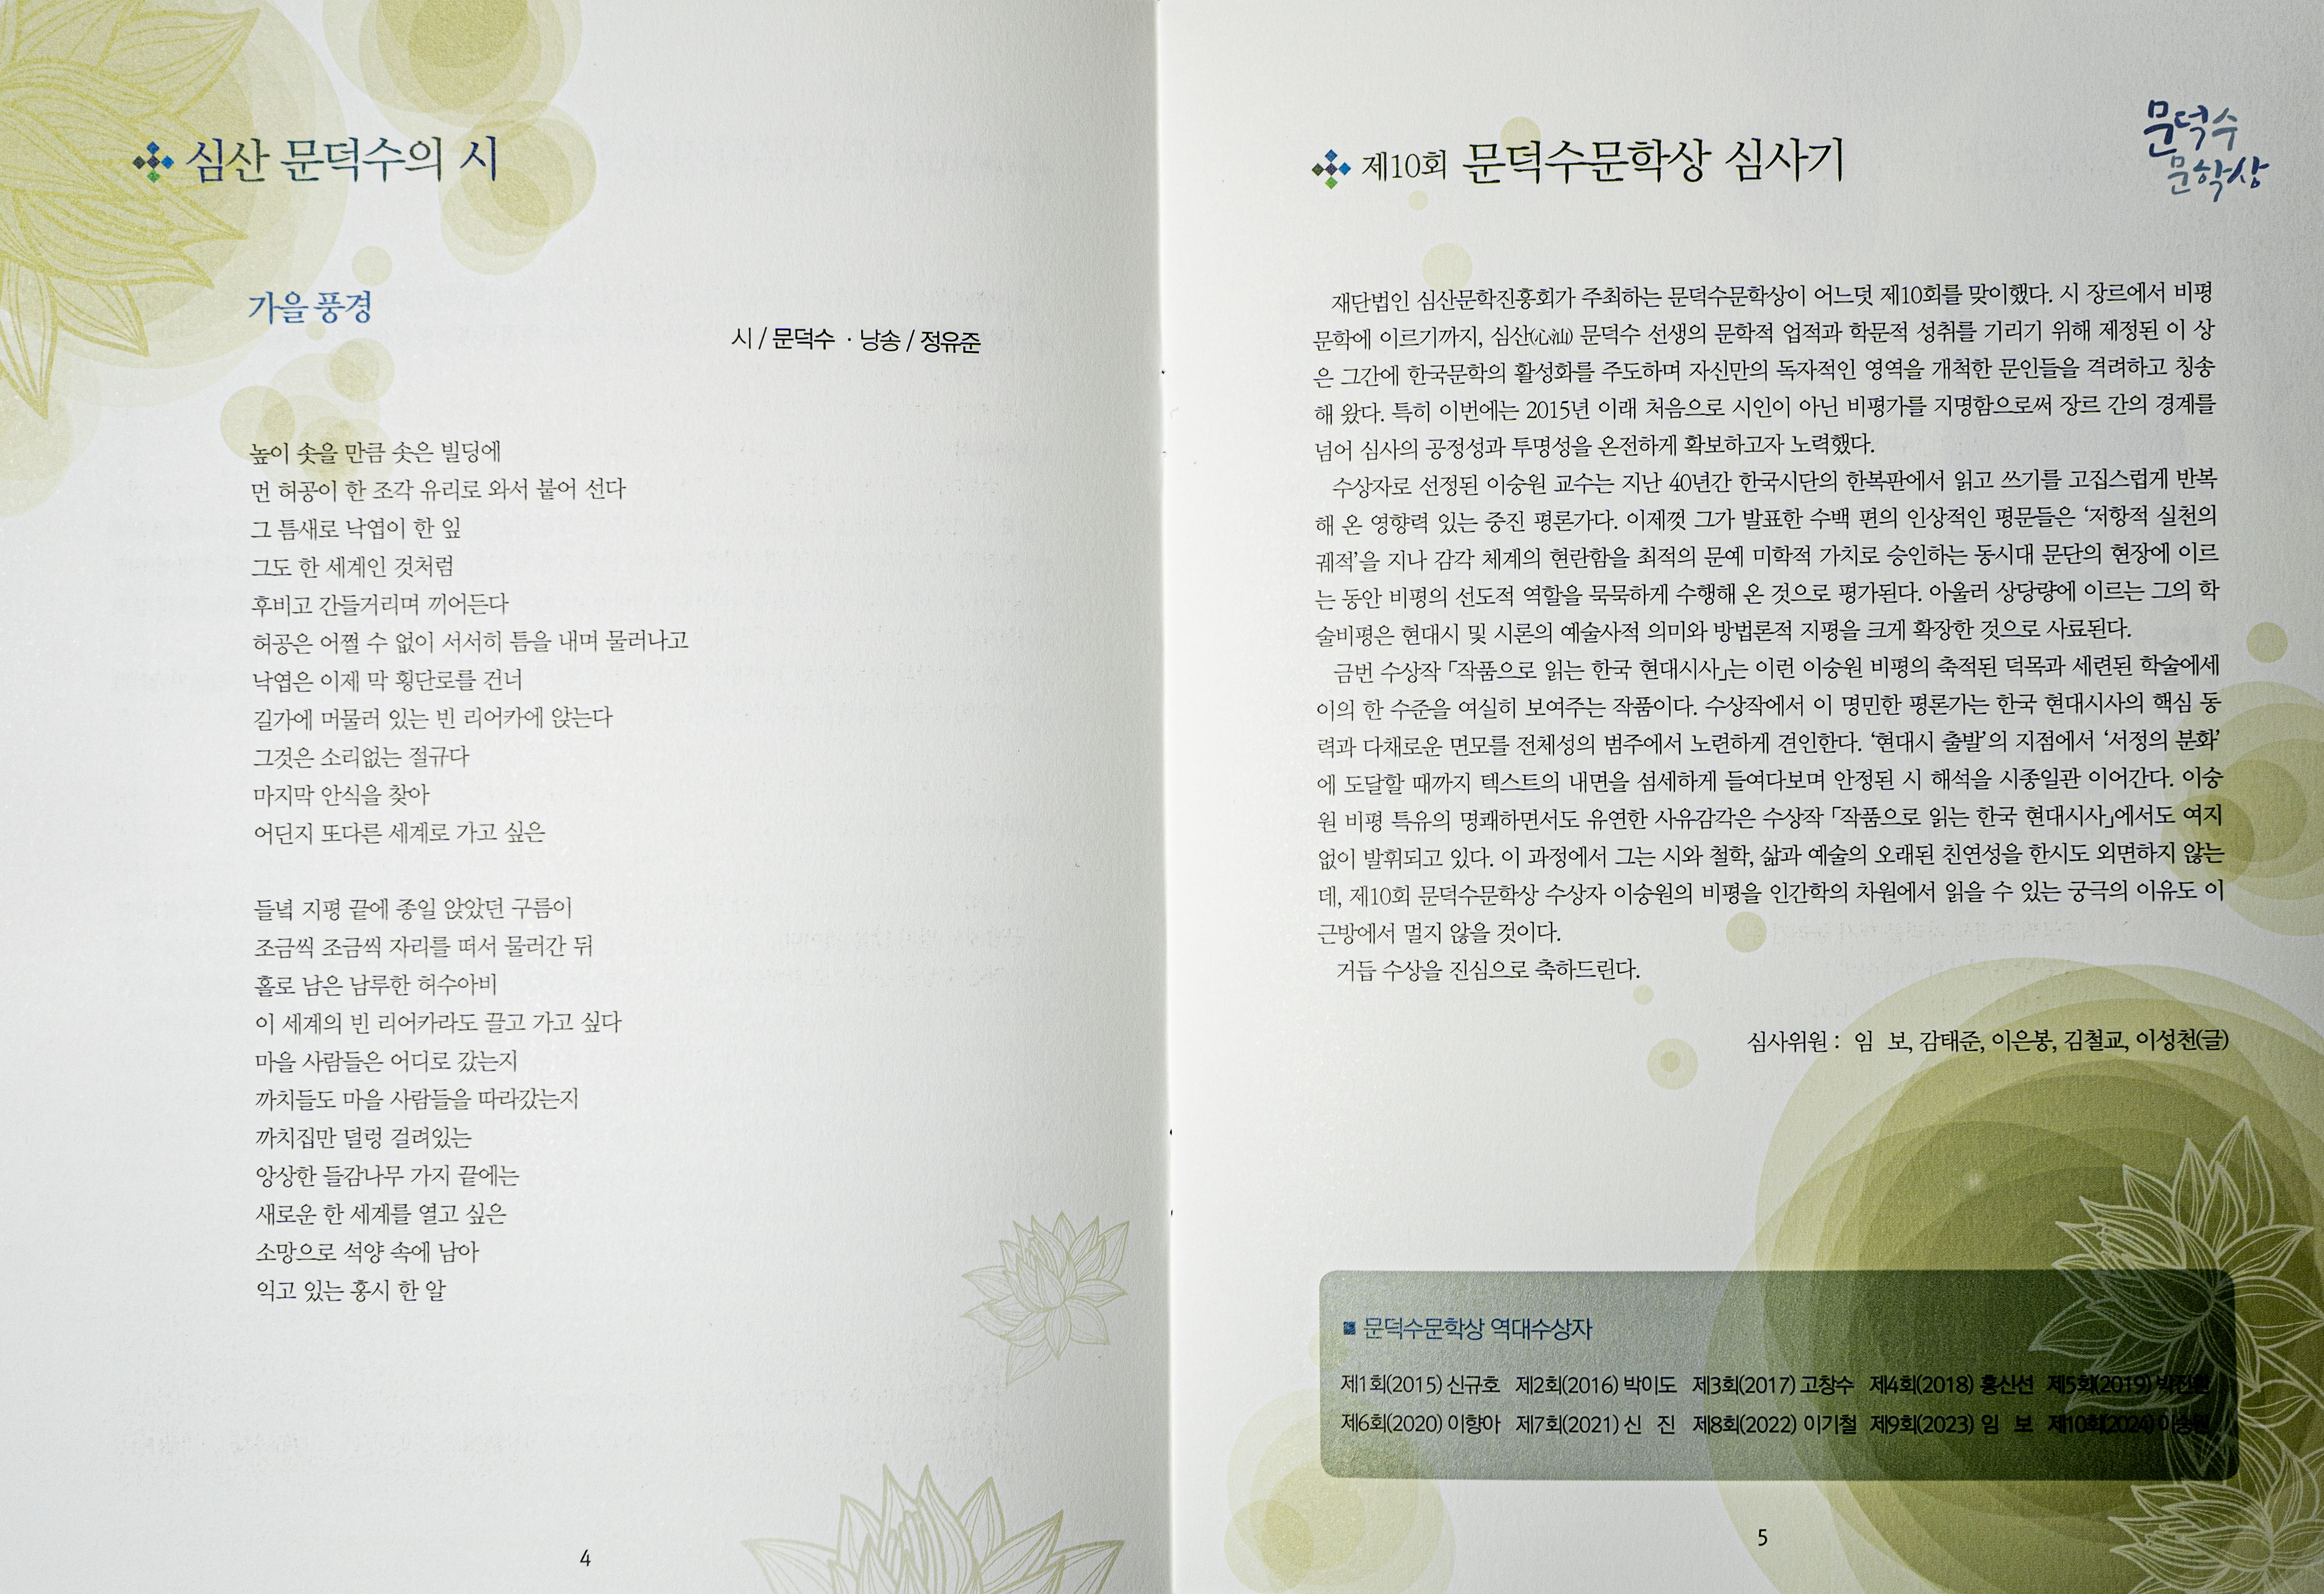 심산 문덕수의 시
가을 풍경
시 / 문덕수 · 낭송 / 정유준
높이 솟을 만큼 솟은 빌딩에
먼 허공이 한 조각 유리로 와서 붙어 선다
그 틈새로 낙엽이 한 잎
그도 한 세계인 것처럼
후비고 간들거리며 끼어든다
허공은 어쩔 수 없이 서서히 틈을 내며 물러나고
낙엽은 이제 막 횡단로를 건너
길가에 머물러 있는 빈 리어카에 앉는다
그것은 소리없는 절규다
마지막 안식을 찾아
어딘지 또다른 세계로 가고 싶은
들녘 지평 끝에 종일 앉았던 구름이
조금씩 조금씩 자리를 떠서 물러간 뒤
홀로 남은 남루한 허수아비
이 세계의 빈 리어카라도 끌고 가고 싶다
마을 사람들은 어디로 갔는지
까치들도 마을 사람들을 따라갔는지
까치집만 덜렁 걸려있는
앙상한 들감나무 가지 끝에는
새로운 한 세계를 열고 싶은
소망으로 석양 속에 남아
익고 있는 홍시 한 알
4
제10회 문덕수문학상 심사기
문덕수
문학상
재단법인 심산문학진흥회가 주최하는 문덕수문학상이 어느덧 제10회를 맞이했다. 시 장르에서 비평
문학에 이르기까지, 심산(心汕) 문덕수 선생의 문학적 업적과 학문적 성취를 기리기 위해 제정된 이 상
은 그간에 한국문학의 활성화를 주도하며 자신만의 독자적인 영역을 개척한 문인들을 격려하고 칭송
해 왔다. 특히 이번에는 2015년 이래 처음으로 시인이 아닌 비평가를 지명함으로써 장르 간의 경계를
넘어 심사의 공정성과 투명성을 온전하게 확보하고자 노력했다.
수상자로 선정된 이숭원 교수는 지난 40년간 한국시단의 한복판에서 읽고 쓰기를 고집스럽게 반복
해 온 영향력 있는 중진 평론가다. 이제껏 그가 발표한 수백 편의 인상적인 평문들은 ‘저항적 실천의
궤적’을 지나 감각 체계의 현란함을 최적의 문예 미학적 가치로 승인하는 동시대 문단의 현장에 이르
는 동안 비평의 선도적 역할을 묵묵하게 수행해 온 것으로 평가된다. 아울러 상당량에 이르는 그의 학
술비평은 현대시 및 시론의 예술사적 의미와 방법론적 지평을 크게 확장한 것으로 사료된다.
금번 수상작 「작품으로 읽는 한국 현대시사」는 이런 이숭원 비평의 축적된 덕목과 세련된 학술에세
이의 한 수준을 여실히 보여주는 작품이다. 수상작에서 이 명민한 평론가는 한국 현대시사의 핵심 동
력과 다채로운 면모를 전체성의 범주에서 노련하게 견인한다. ‘현대시 출발’의 지점에서 ‘서정의 분화’
에 도달할 때까지 텍스트의 내면을 섬세하게 들여다보며 안정된 시 해석을 시종일관 이어간다. 이숭
원 비평 특유의 명쾌하면서도 유연한 사유감각은 수상작 「작품으로 읽는 한국 현대시사」에서도 여지
없이 발휘되고 있다. 이 과정에서 그는 시와 철학, 삶과 예술의 오래된 친연성을 한시도 외면하지 않는
데, 제10회 문덕수문학상 수상자 이숭원의 비평을 인간학의 차원에서 읽을 수 있는 궁극의 이유도 이
근방에서 멀지 않을 것이다.
거듭 수상을 진심으로 축하드린다.
심사위원 : 임 보, 감태준, 이은봉, 김철교, 이성천(글)
문덕수문학상 역대수상자
제1회(2015) 신규호 제2회(2016) 박이도 제3회(2017) 고창수 제4회(2018) 홍신선 제5회(2019)
제6회(2020) 이향아 제7회(2021) 신 진 제8회(2022) 이기철 제9회(2023) 임 보 제10회(2024) 이숭원
5